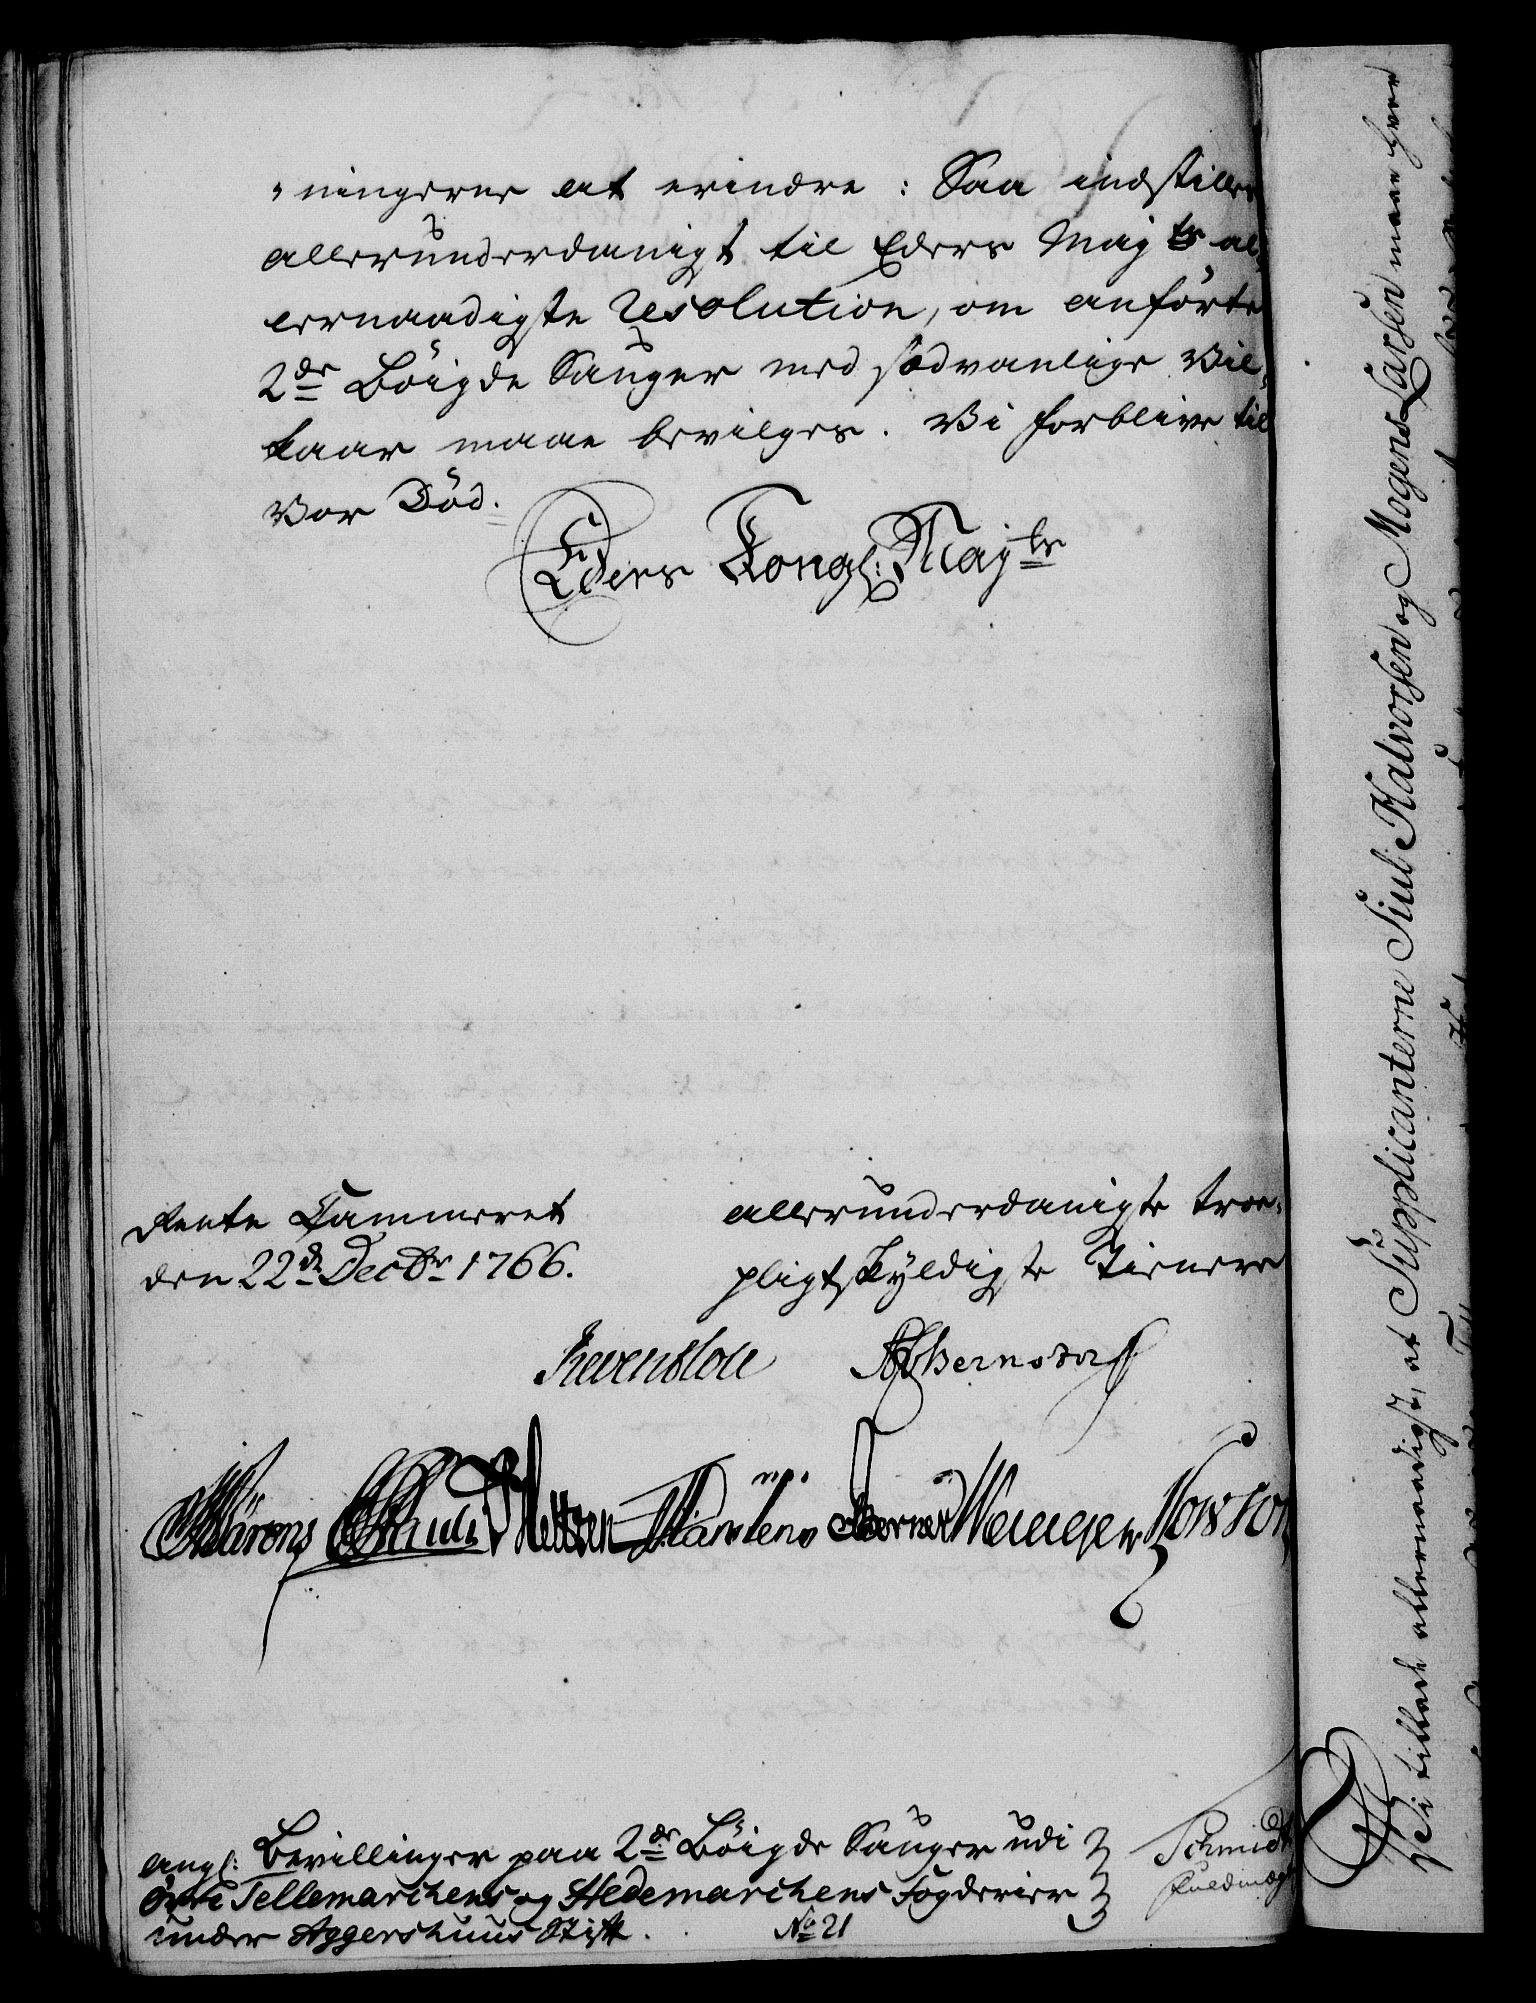 ningerne at erindre: Saa indstilles
allerunderdanigst til Eders Mayts al-
lernaadigste Resolution, om anförte
2de Böigde Sauger med sædvanlige Vil-
kaar maae bevilges. Vi forblive til
vor Död.
Eders Kongl: Mayts
Rente Cammeret
den 22de Decbr 1766.
allerunderdanigste troe-
pligtskyldigste Tienere
Reventlou Bernstorff
Schmidt
Fuldmægt
angl: Bevillinger paa 2de Böigde Sauger udi
övre Tellemarchens og Hedemarchens Fogderier
under Aggershuus Stift.
No 21
Vi tillade allernaadigst, at Supplicanterne Siul Halvorsen og Mogens Larsen maae hver